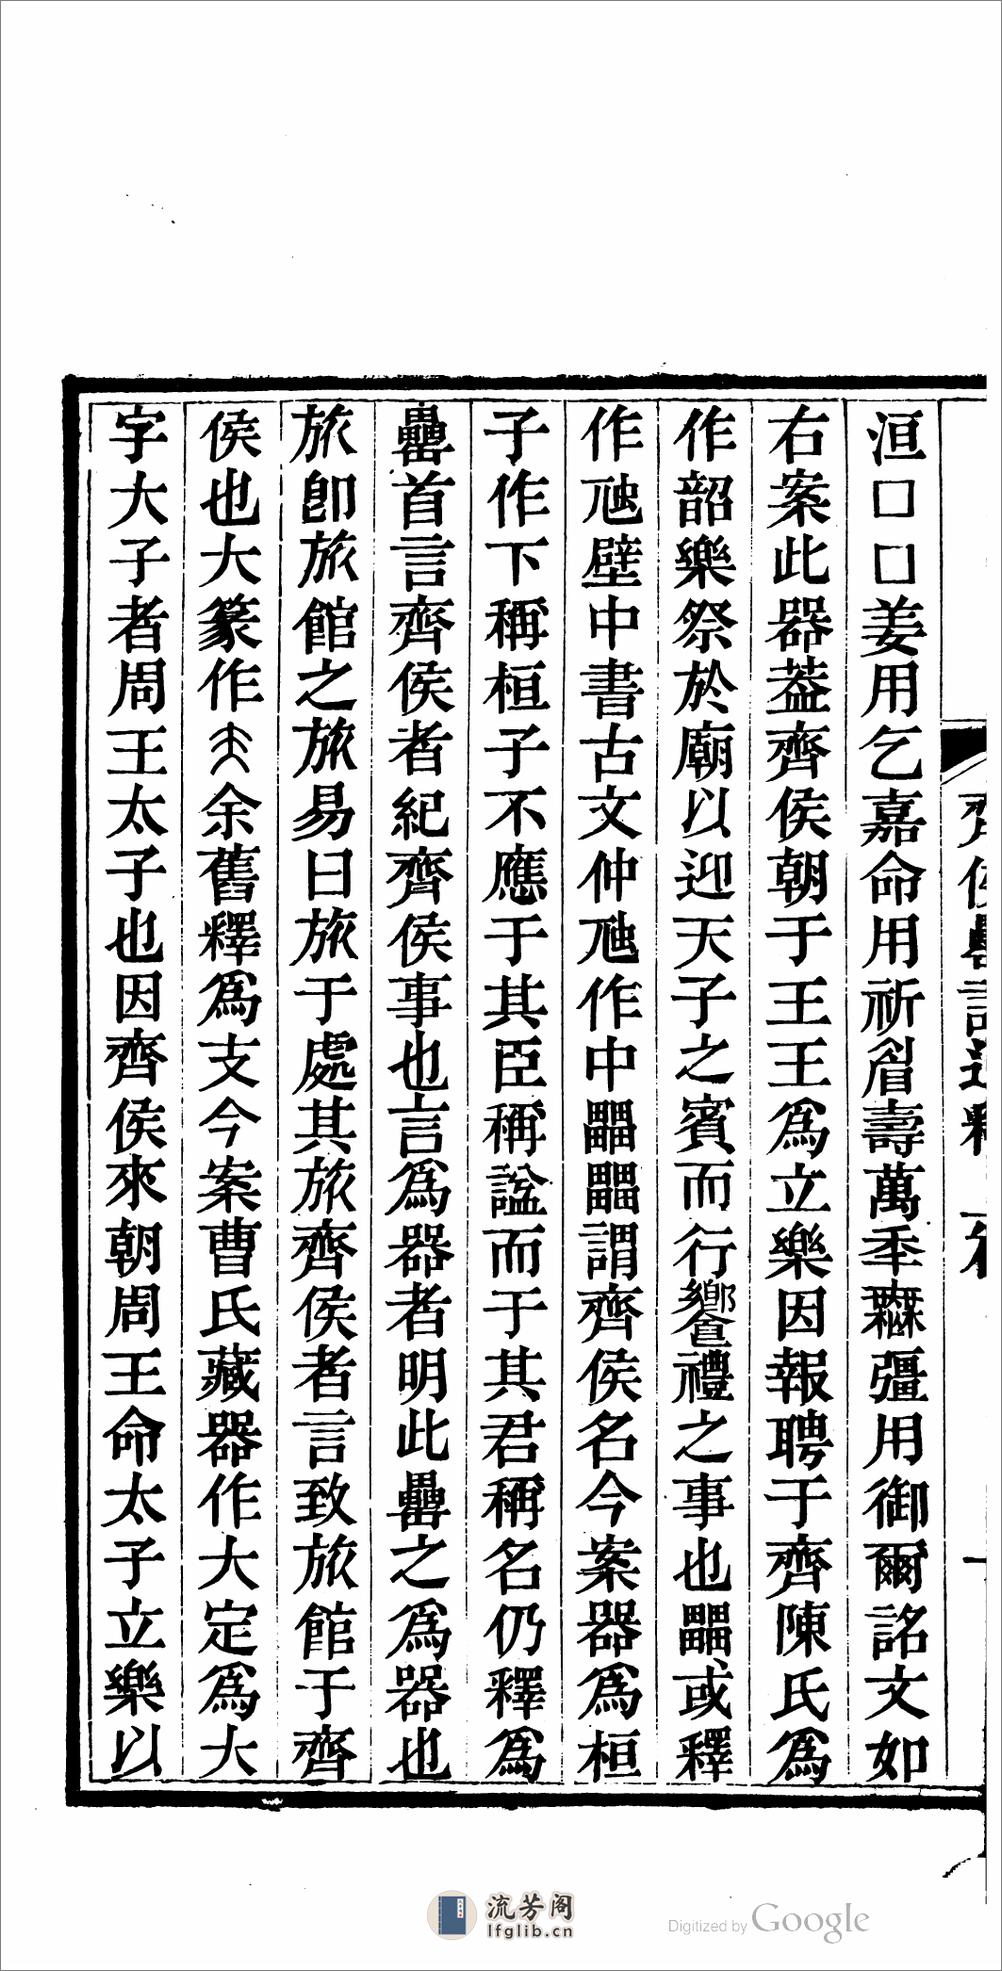 洹□□姜用乞嘉命用祈眉壽萬秊無彊用御爾詺文如
右案此器葢齊侯朝于王王爲立樂因報聘于齊陳氏爲
作韶樂祭於廟以迎天子之賓而行饗禮之事也畾或釋
作虺壁中書古文仲虺作中畾畾謂齊侯名今案器爲桓
子作下稱桓子不應于其臣稱諡而于其君稱名仍釋爲
罍首言齊侯者紀齊侯事也言爲器者明此罍之爲器也
旅卽旅館之旅易曰旅于處其旅齊侯者言致旅館于齊
侯也大篆作余舊釋爲支今案曹氏藏器作大定爲大
字大子者周王太子也因齊侯來朝周王命太子立樂以
齊侯罍
一
流芳阁
lfglib.cn
Digitized by Google